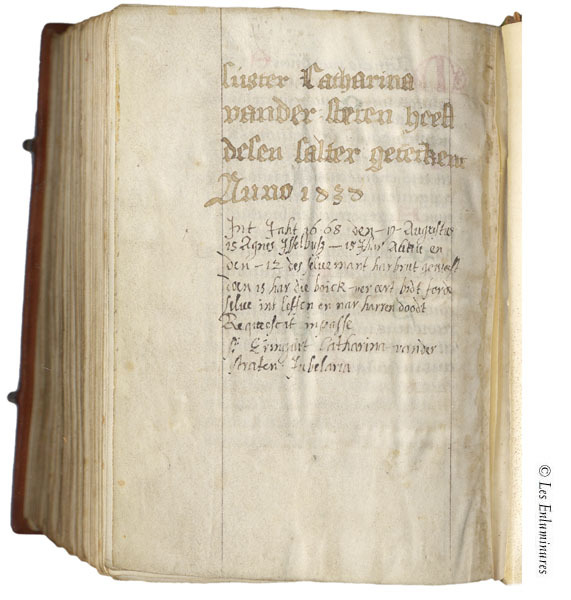 suster Catharina
vander steten heeft
desen salter geteikent
Anno
Int Jaht 1668 den - 12 Augustus
is Agnes - 15 Jhar Autie en
den - 12 des selve mant har brut
doen is har die boick ver eert bidt fore
selve int leffen en nar harren doodt
Requescat inpasse
Catharina vander
straten Jubelaria
© Les Enluminures